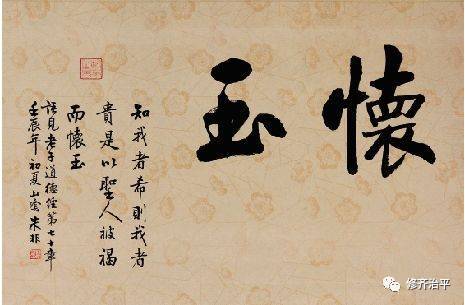 懷玉
知我者希則我者
貴是以聖人被褐
而懷玉
語見老子道德經第七十章
壬辰年初夏山朱非
修齐治平